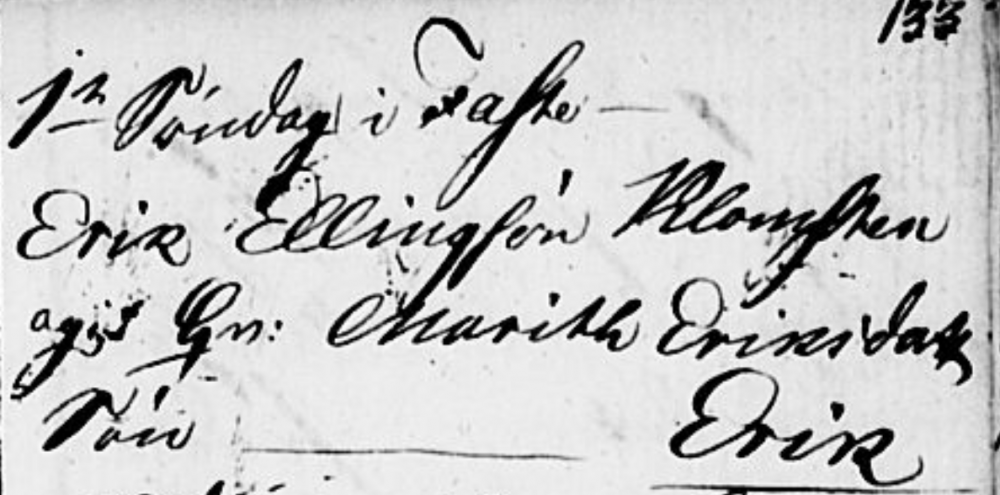 133
1n Søndag i Faste —
Erik Ellingsøn Klomsten
og Qv: Marith Eriksdatr
Søn Erik